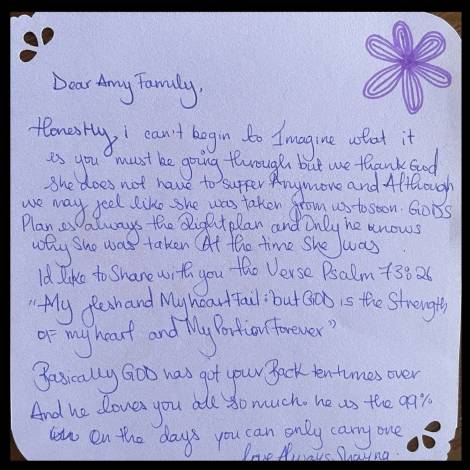 Dear Amy Family,
Honestly, i can't begin to Imagine what it
is you must be going through but we thank God
she does not have to suffer Anymore and Although
we may feel like she was taken from us to soon. GODS
Plan is always the Right plan and Only he knows
why She was taken At the time She was.
I'd like to Share with you the Verse Psalm 73:26
"My flesh and My heart Fail: but GOD is the Strength
of my heart and My Portion Forever"
Basically GOD has got your Back ten times over
And he loves you all so much. he is the 99%
On the days you can only carry one
love Always, Shayna